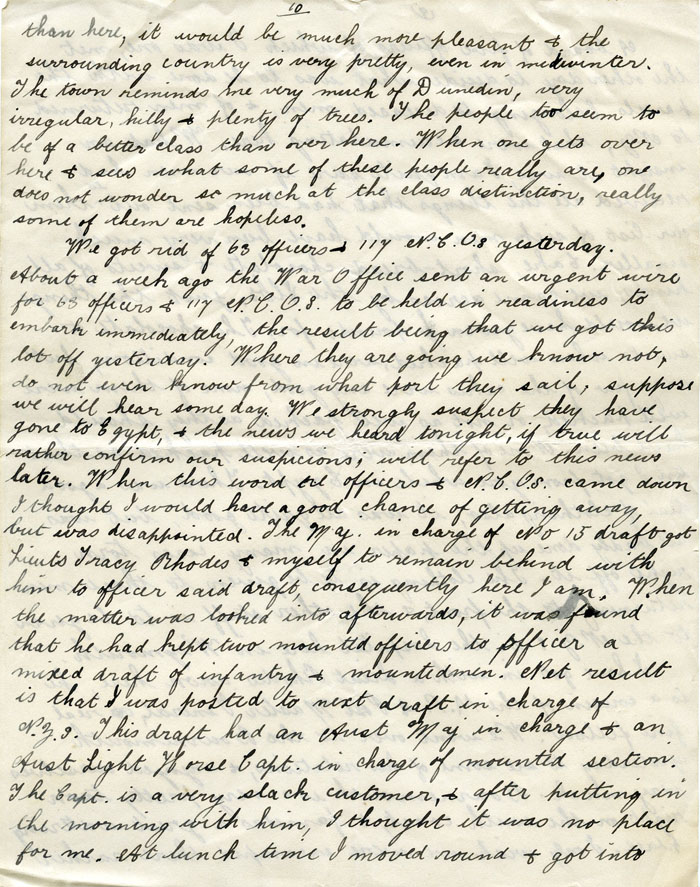 10
than here, it would be much more pleasant & the
surrounding country is very pretty, even in midwinter.
The town reminds me very much of Dunedin, very
irregular, hilly & plenty of trees. The people too seem to
be of a better class than over here. When one gets over
here & sees what some of these people really are, one
does not wonder so much at the class distinction, really
some of them are hopeless.
We got rid of 63 officers & 117 N.C.O.s yesterday.
About a week ago the War Office sent an urgent wire
for 63 officers & 117 N.C.O.s. to be held in readiness to
embark immediately, the result being that we got this
lot off yesterday. Where they are going we know not,
do not even know from what port they sail, suppose
we will hear some day. We strongly suspect they have
gone to Egypt, & the news we heard tonight, if true will
rather confirm our suspicions; will refer to this news
later. When this word re officers & N.C.O.s. came down
I thought I would have a good chance of getting away,
but was disappointed. The Maj. in charge of No 15 draft got
Lieuts Tracy Rhodes & myself to remain behind with
him to officer said draft, consequently here I am. When
the matter was looked into afterwards, it was found
that he had kept two mounted officers to officer a
mixed draft of infantry & mountedmen. Net result
is that I was posted to next draft in charge of
N.Z.s. This draft had an Aust Maj in charge & an
Aust Light Horse Capt. in charge of mounted section.
The Capt. is a very slack customer, & after putting in
the morning with him, I thought it was no place
for me. At lunch time I moved round & got into